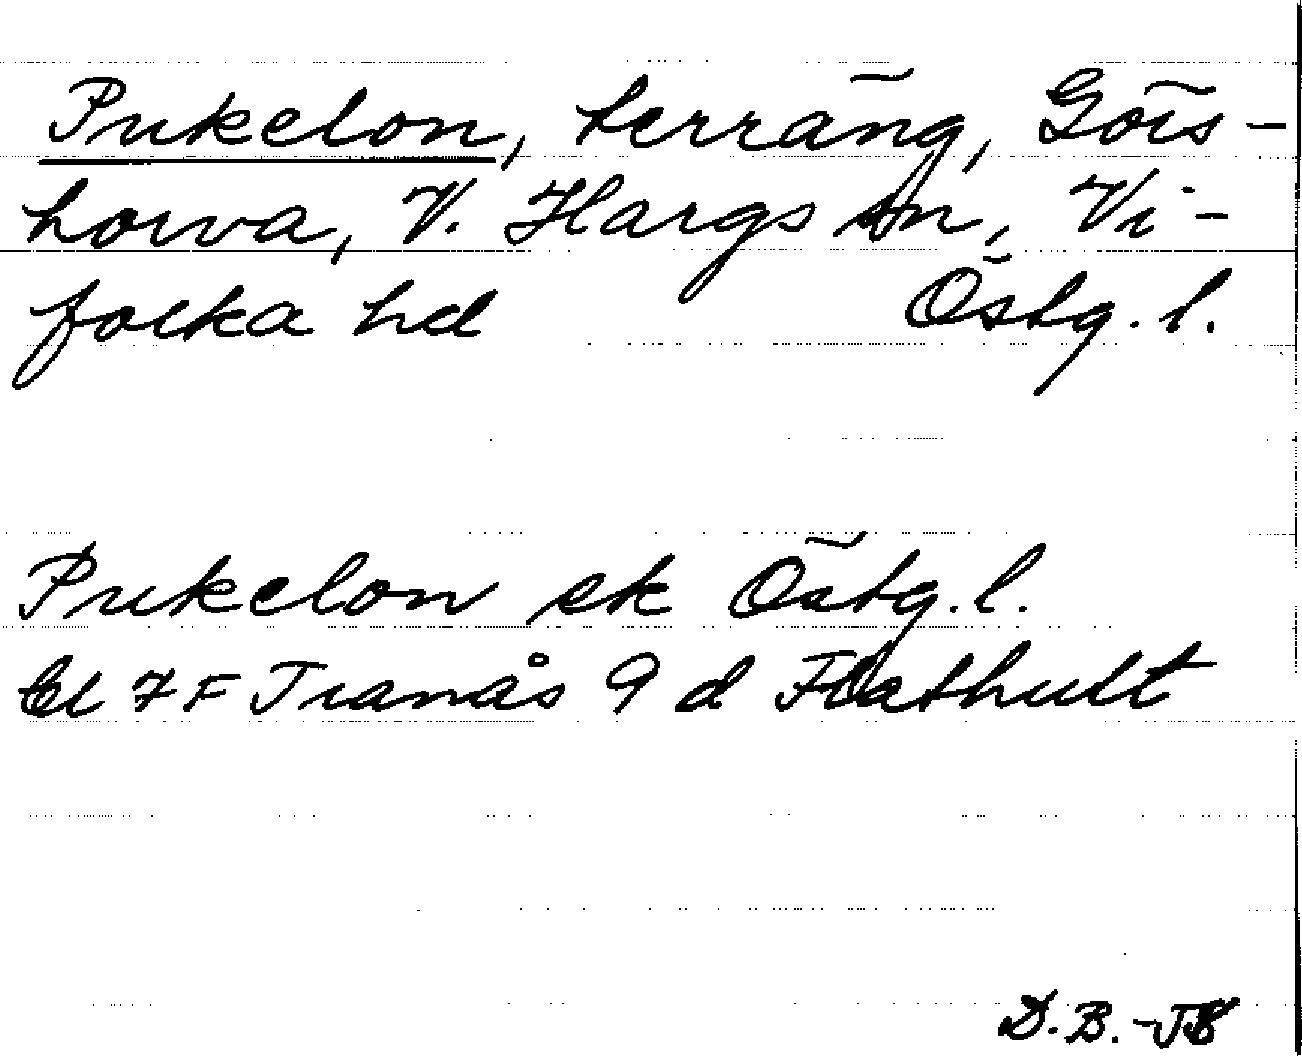 Pukelon, terräng, Göts-
horva, V. Hargs sn, Vi-
folka hd Östg. l.
Pukelon ek Östg. l.
bl 7 F Tranås 9 d Flathult
D.B.-JB